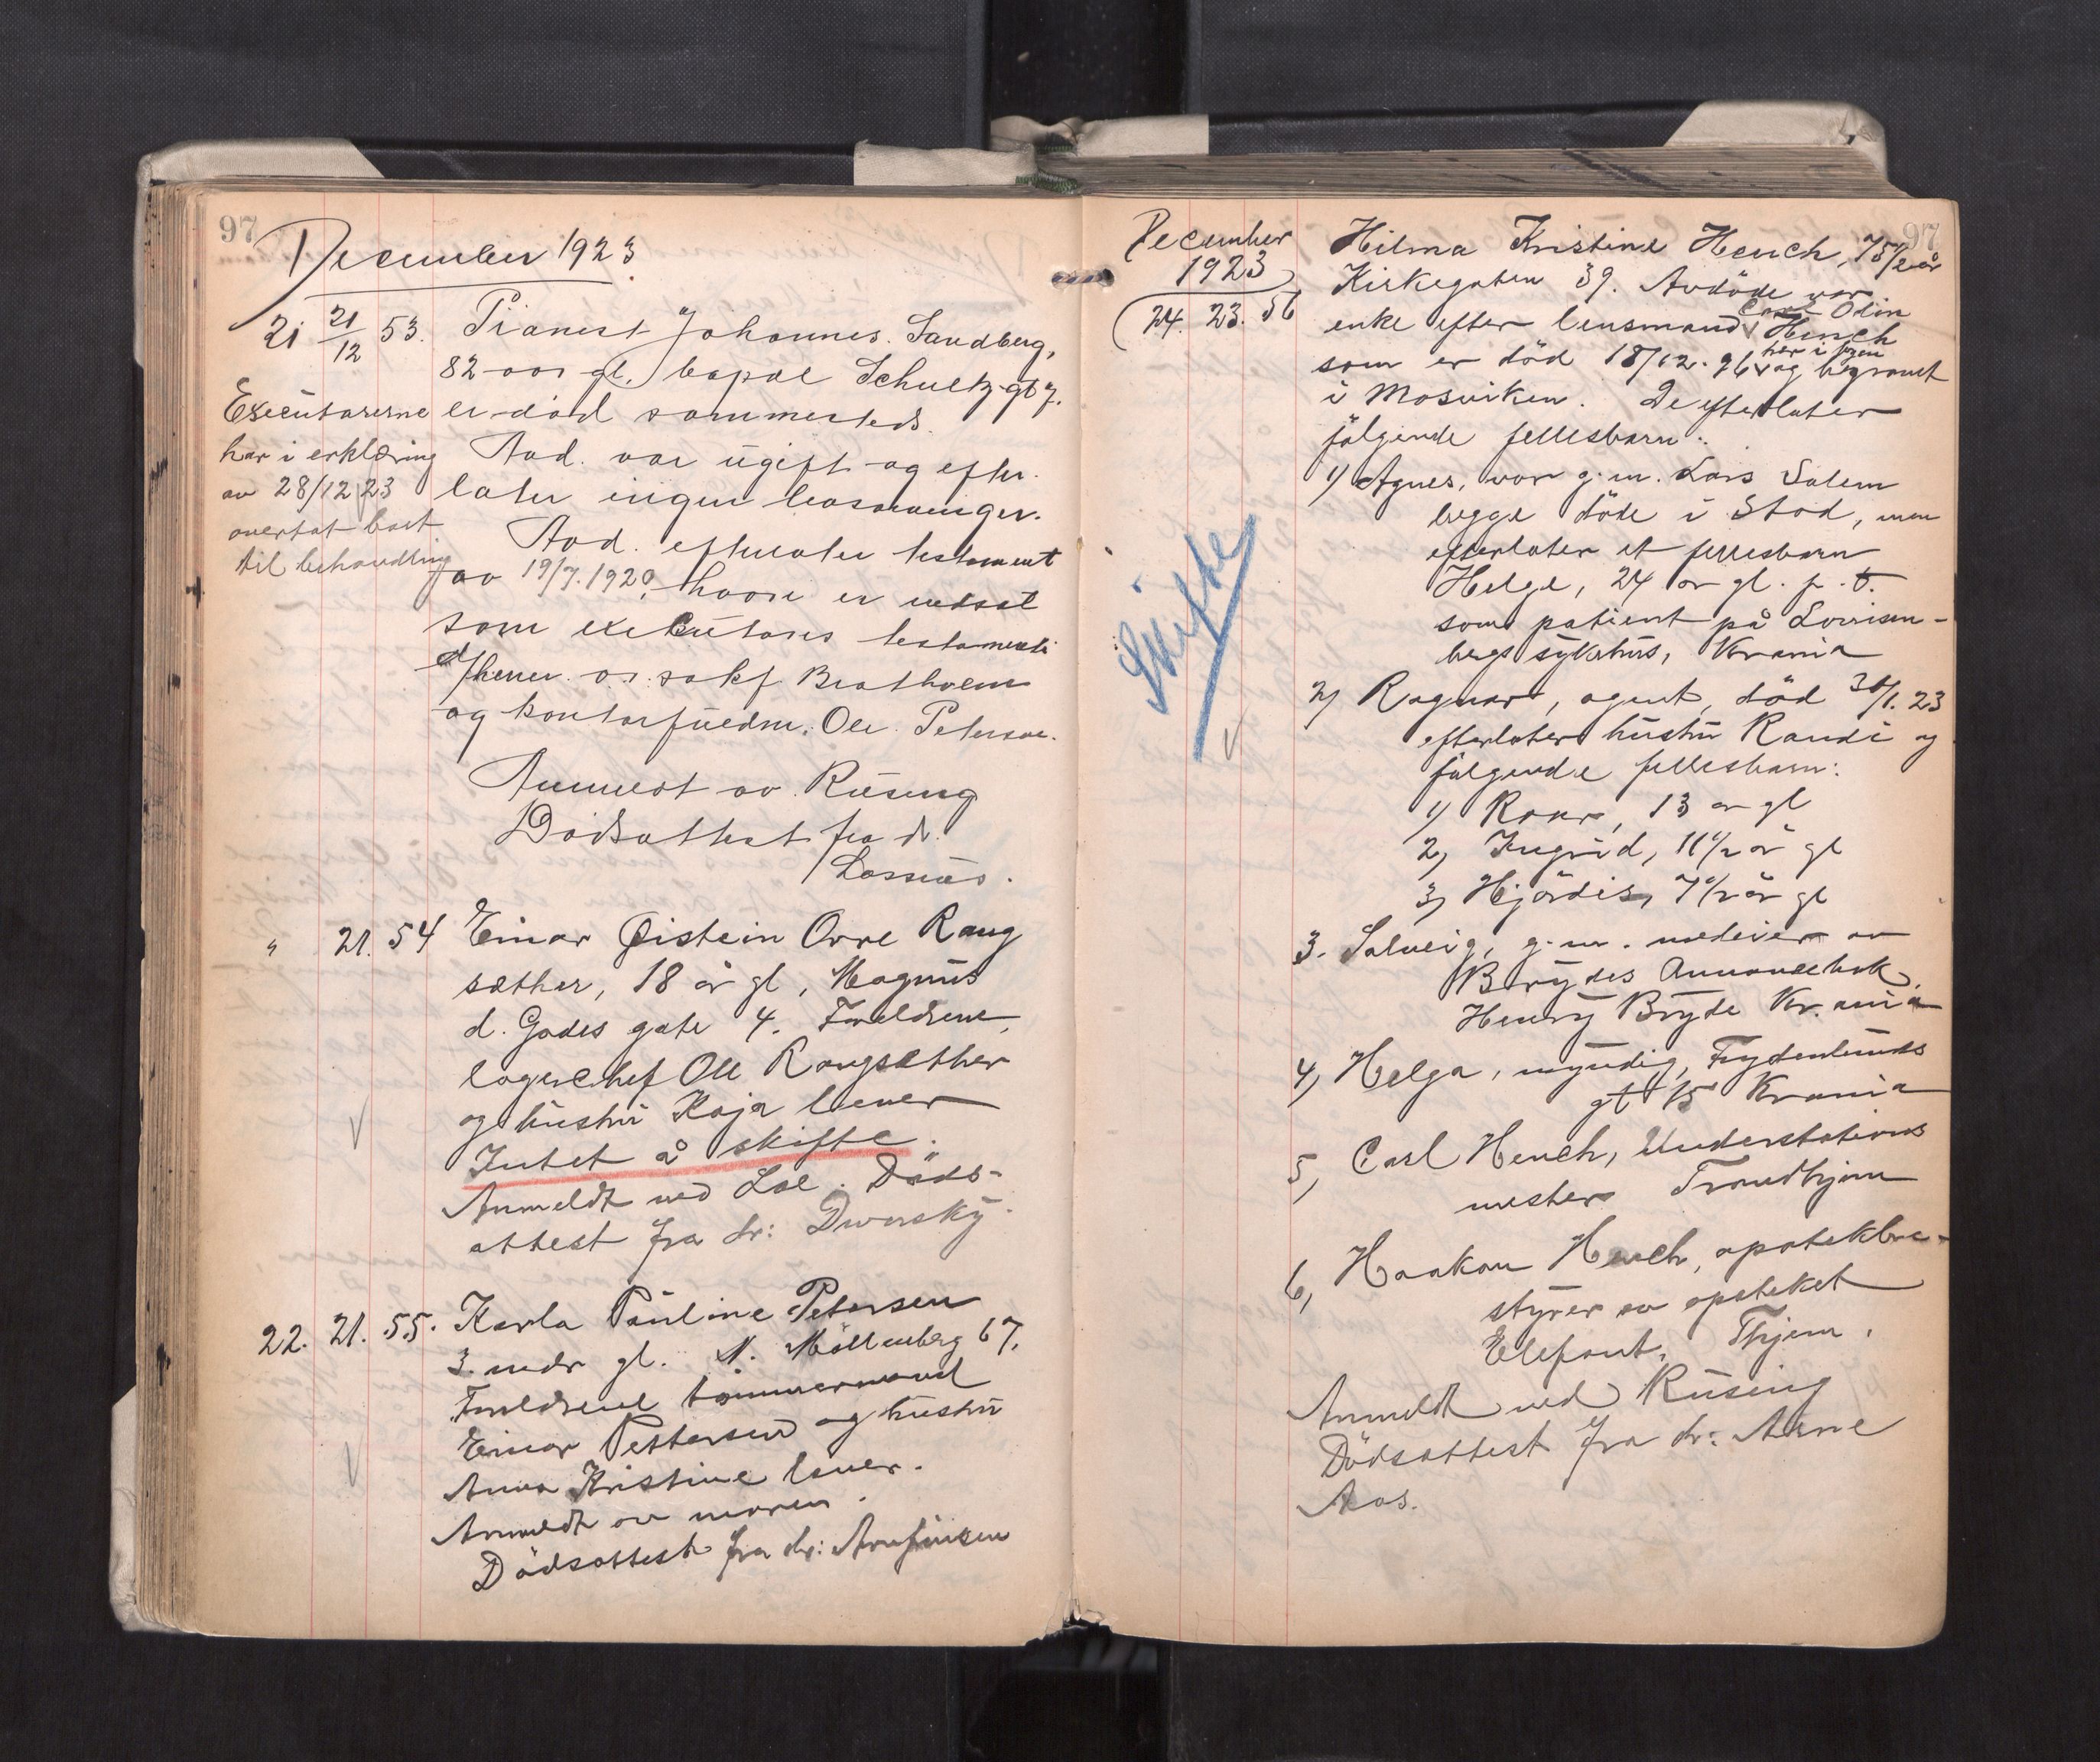 97
December 1923
21 21/12 53. Pianist Johannes Sandberg,
82 aar gl. Capt. Schultz gt 7.
er död sammesteds.
Avd. var ugift og efter-
later ingen livsarvinger.
Avd. efterlater testament
av 19/7.1920, hvori er indsat
som executores testamenti
d'herrer o.r.sakf. Bratholm
og kontorfuldm. Ole Peterson.
Anmeldt av Rising
Dödsattest fra d.
Lossius.
Executorerne
har i erklæring
av 28/12 23
overtat boet
til behandling
" 21. 54 Einar Øistein Orre Raug
sæther, 18 år gl, Magnus
d. Godes gate 4. Foreldrene,
lagerchef Ole Raugsæther
og hustru Kaja lever
Intet å skifte.
Anmeldt ved Loe. Döds-
attest fra dr: Dworsky.
22. 21. 55. Karla Pauline Petersen
3. mdr gl. N. Möllenberg 67.
Foreldrene tömmermand
Einar Pettersen og hustru
Anna Kristine lever.
Anmeldt av moren.
Dödsattest fra dr: Arnfinsen
97
December
1923
24. 23. 56
Hilma Kristine Hench, 75 1/2 år
Kirkegaten 39. Avdöde var
enke efter lensmand Odin
Hench
som er död 18/12.96 her i byen og begravet
i Mosviken. De efterlater
fölgende fellesbarn:
1) Agnes, var g.m. Lars Salem
begge döde i Stod, men
efterlater et fellesbarn
Helge, 24 år gl. p.t.
som patient på Lovisen-
bergs sykehus, Krania
2) Ragnar, agent, död 30/1.23
efterlater hustru Randi og
fölgende fellesbarn:
1) Roar, 13 år gl
2) Ingrid, 11 1/2 år gl
3) Hjördis, 7 1/2 år gl
3. Solveig, g.m. medeier av
Brydes Annoncebok,
Henry Bryde Kr.ania
4) Helga, myndig, Frydenlunds
gt 15 Krania
5) Carl Hench, Understations
mester Trondhjem
6) Haakon Hench, apotekbe-
styrer av apoteket
Elefant, Thjem.
Anmeldt ved Rising
Dödsattest fra dr: Arne
Aas.
Skifte